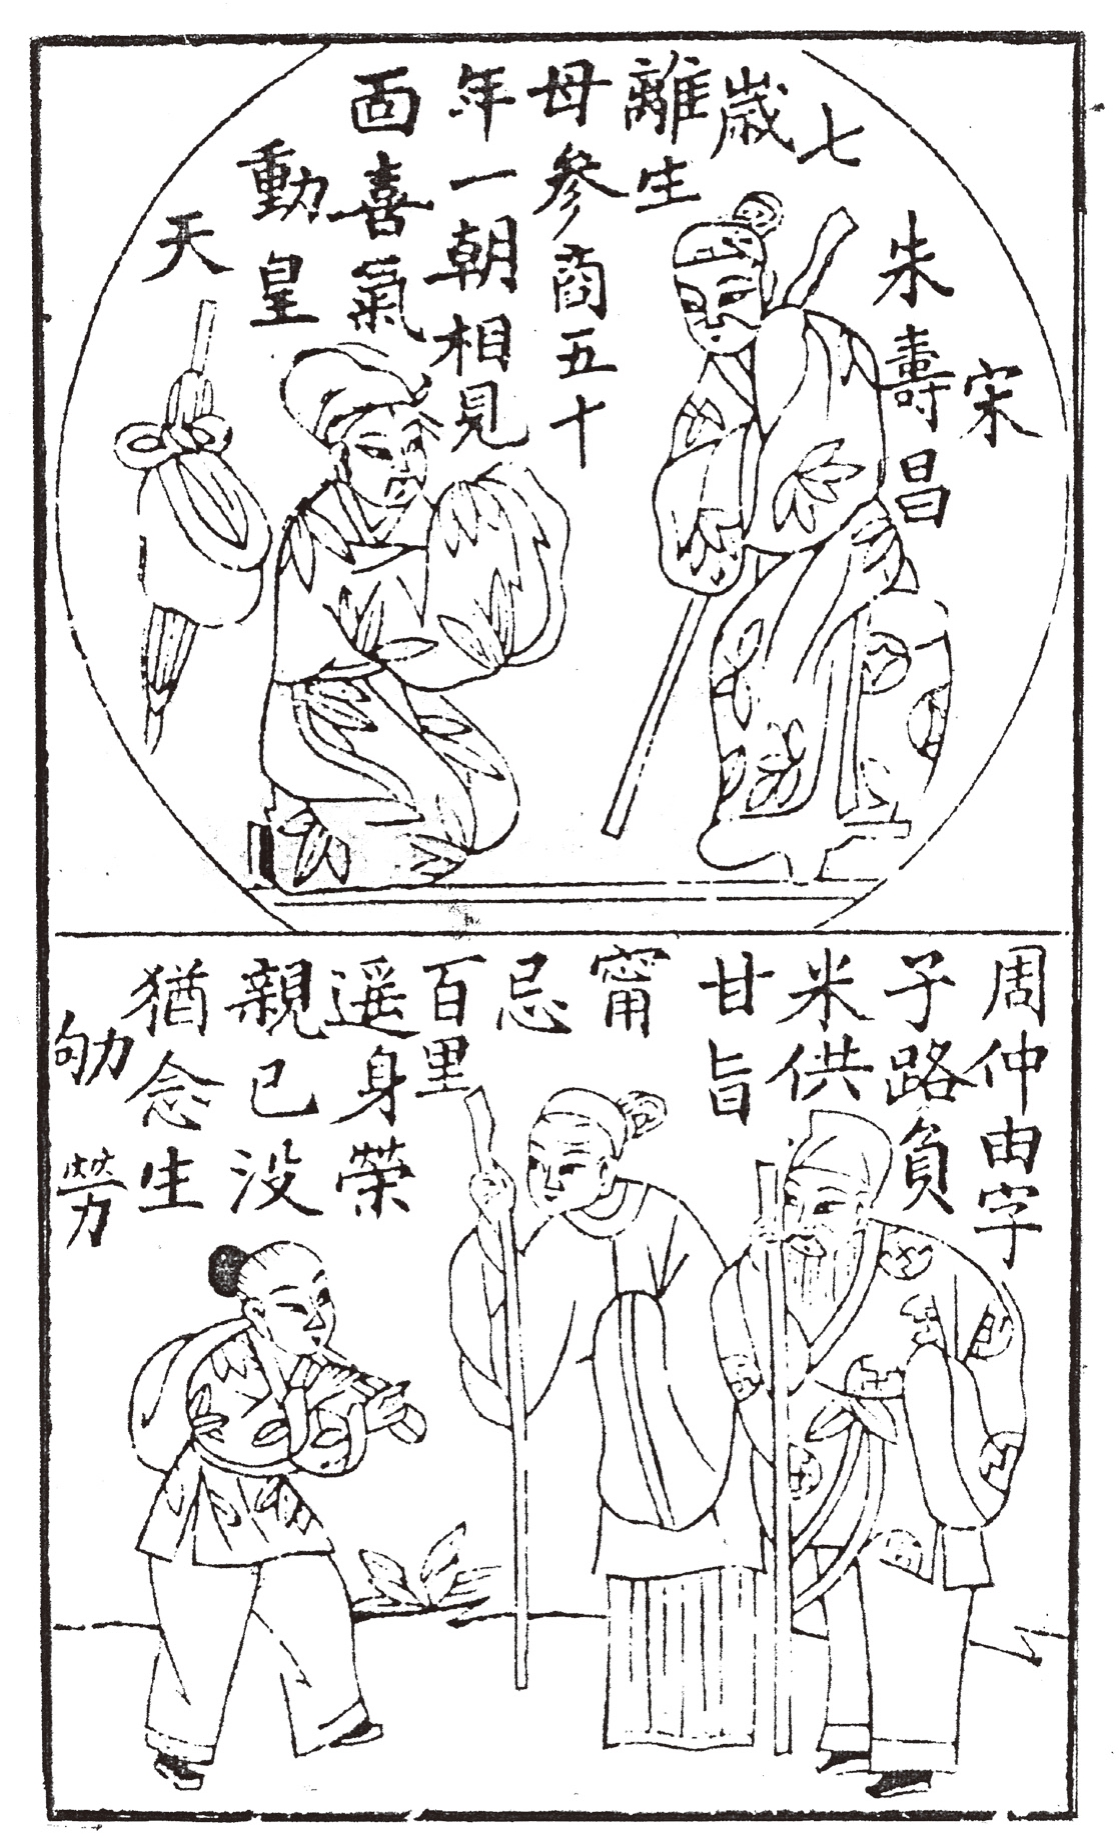 宋
朱壽昌
七
歳
離生
母參商五十
年一朝相見
面喜氣
動皇
天
周仲由字
子路負
米供
甘旨
甯
忌
百里
遥身榮
親已没
猶念生
劬勞